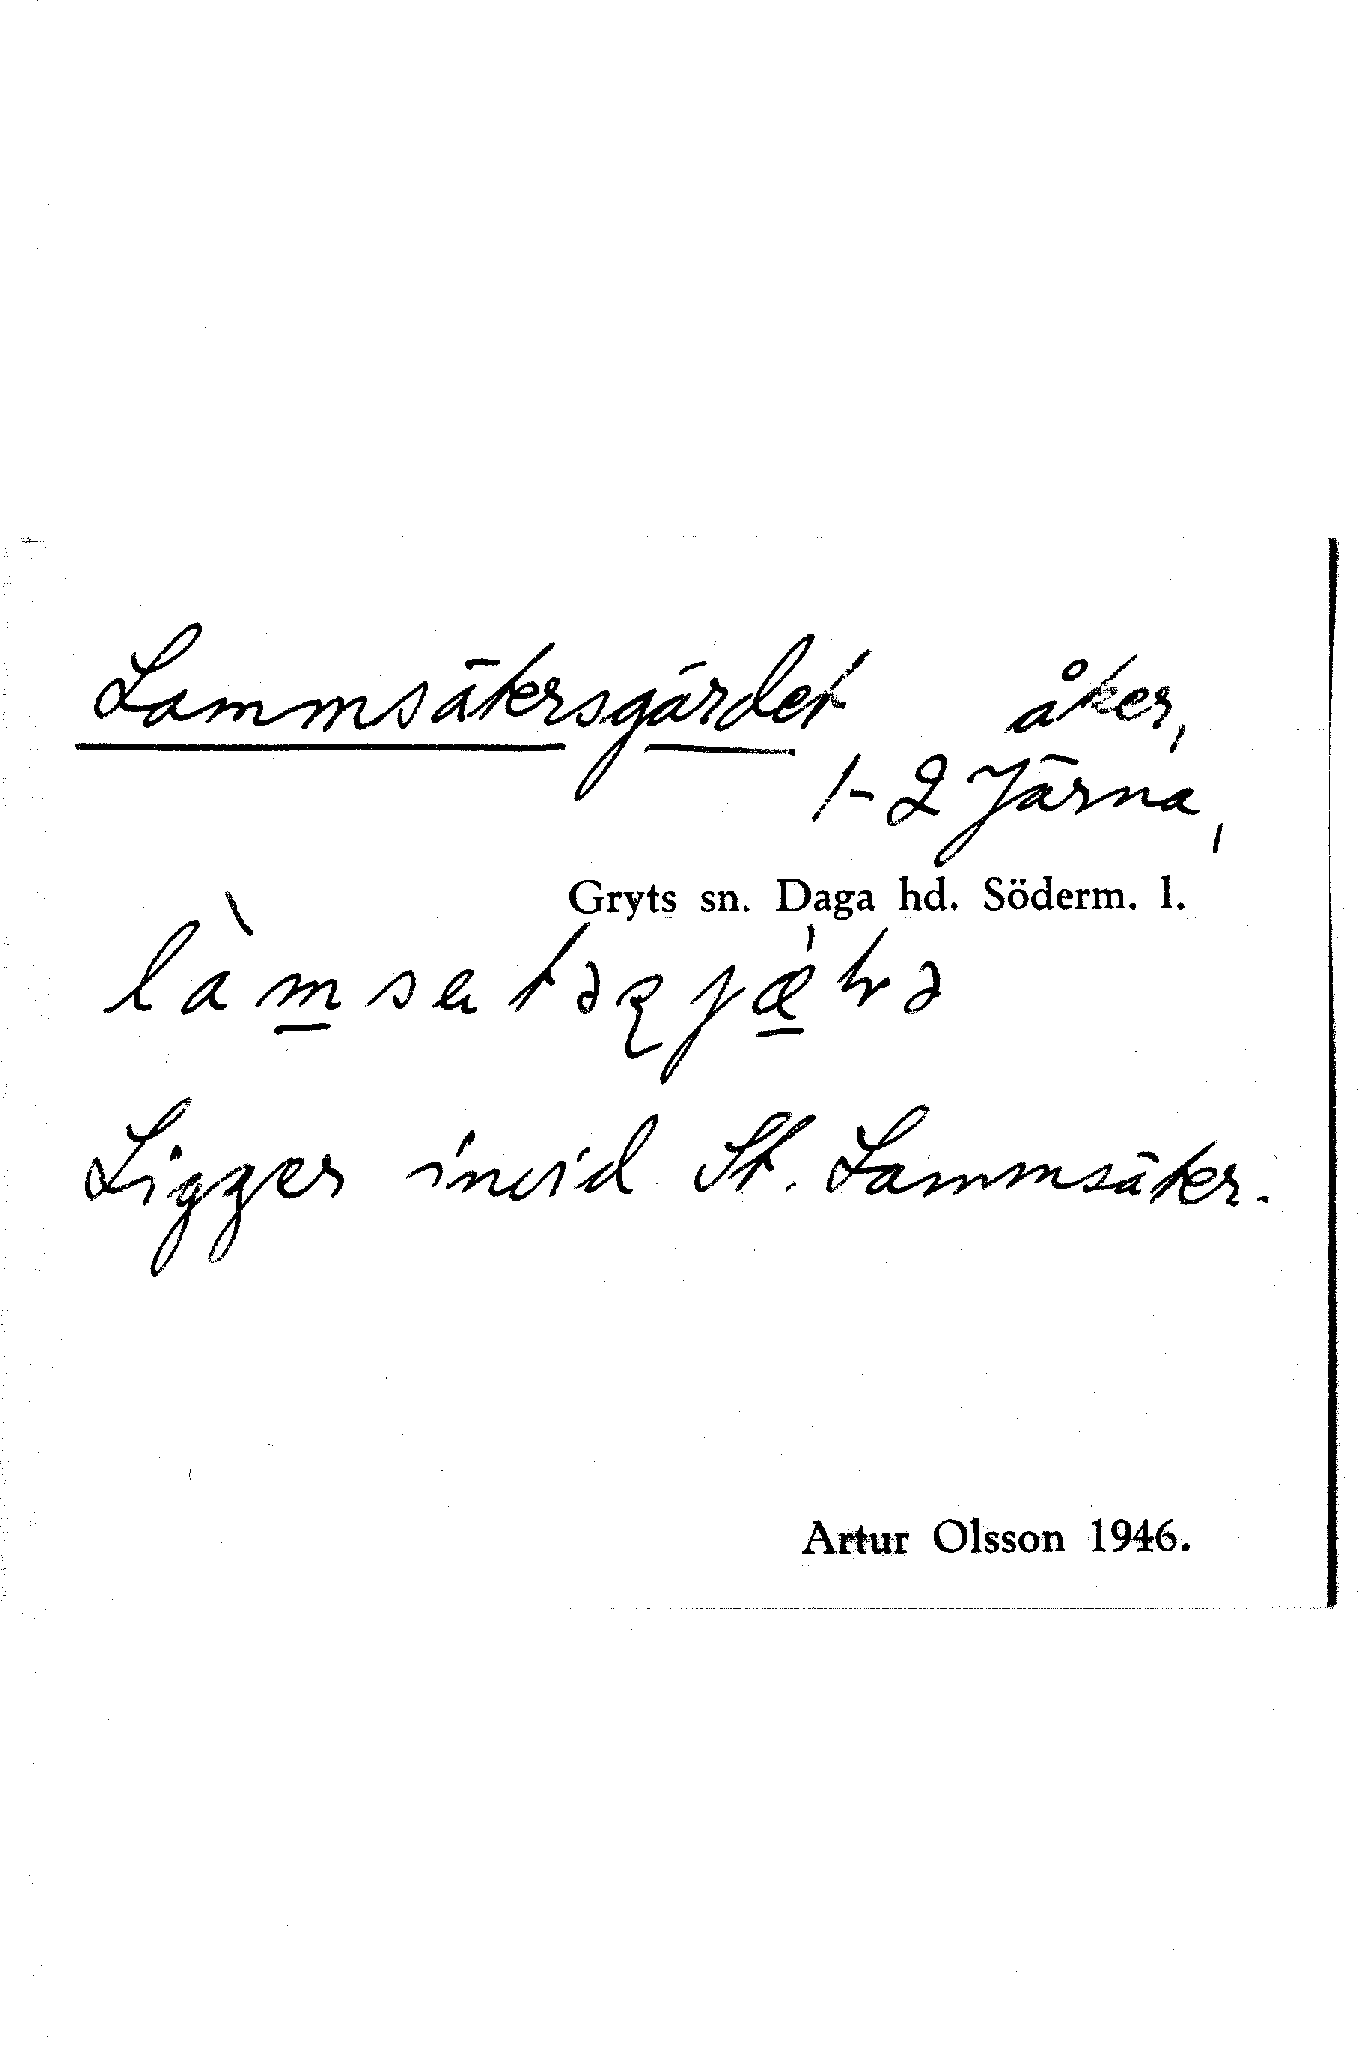 Lammsäkersgärdet åker,
1-2 Järna,
Gryts sn. Daga hd. Söderm. l.
Ligger invid St. Lammsäker.
Artur Olsson 1946.